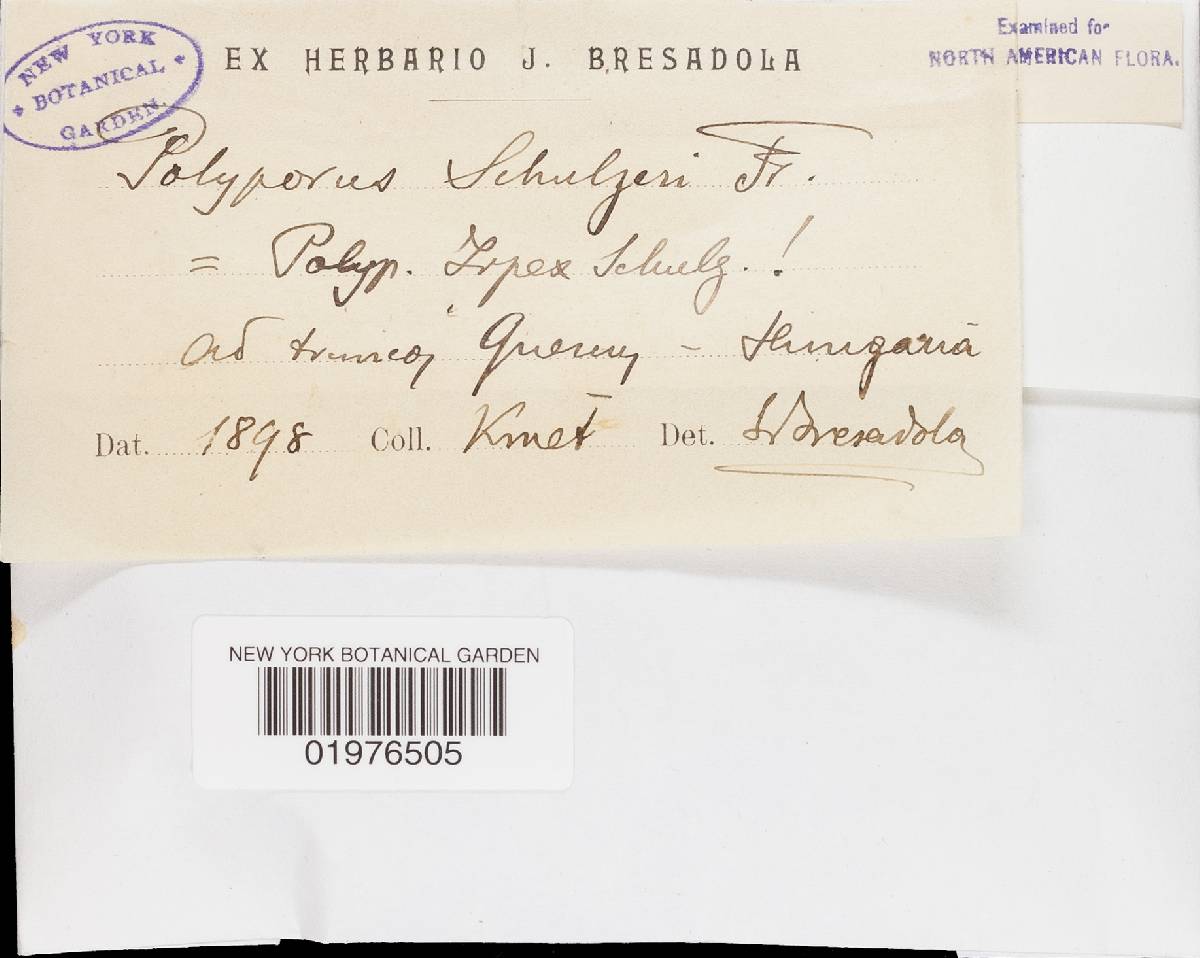 NEW YORK
BOTANICAL
GARDEN.
EX HERBARIO J. BRESADOLA
Examined for
NORTH AMERICAN FLORA.
Polyporus Schulzeri Fr.
= Polyp. Irpex Schulz. !
ad truncos Quercus – Hungaria
Dat. 1898 Coll. Kmet Det. Bresadola
NEW YORK BOTANICAL GARDEN
01976505